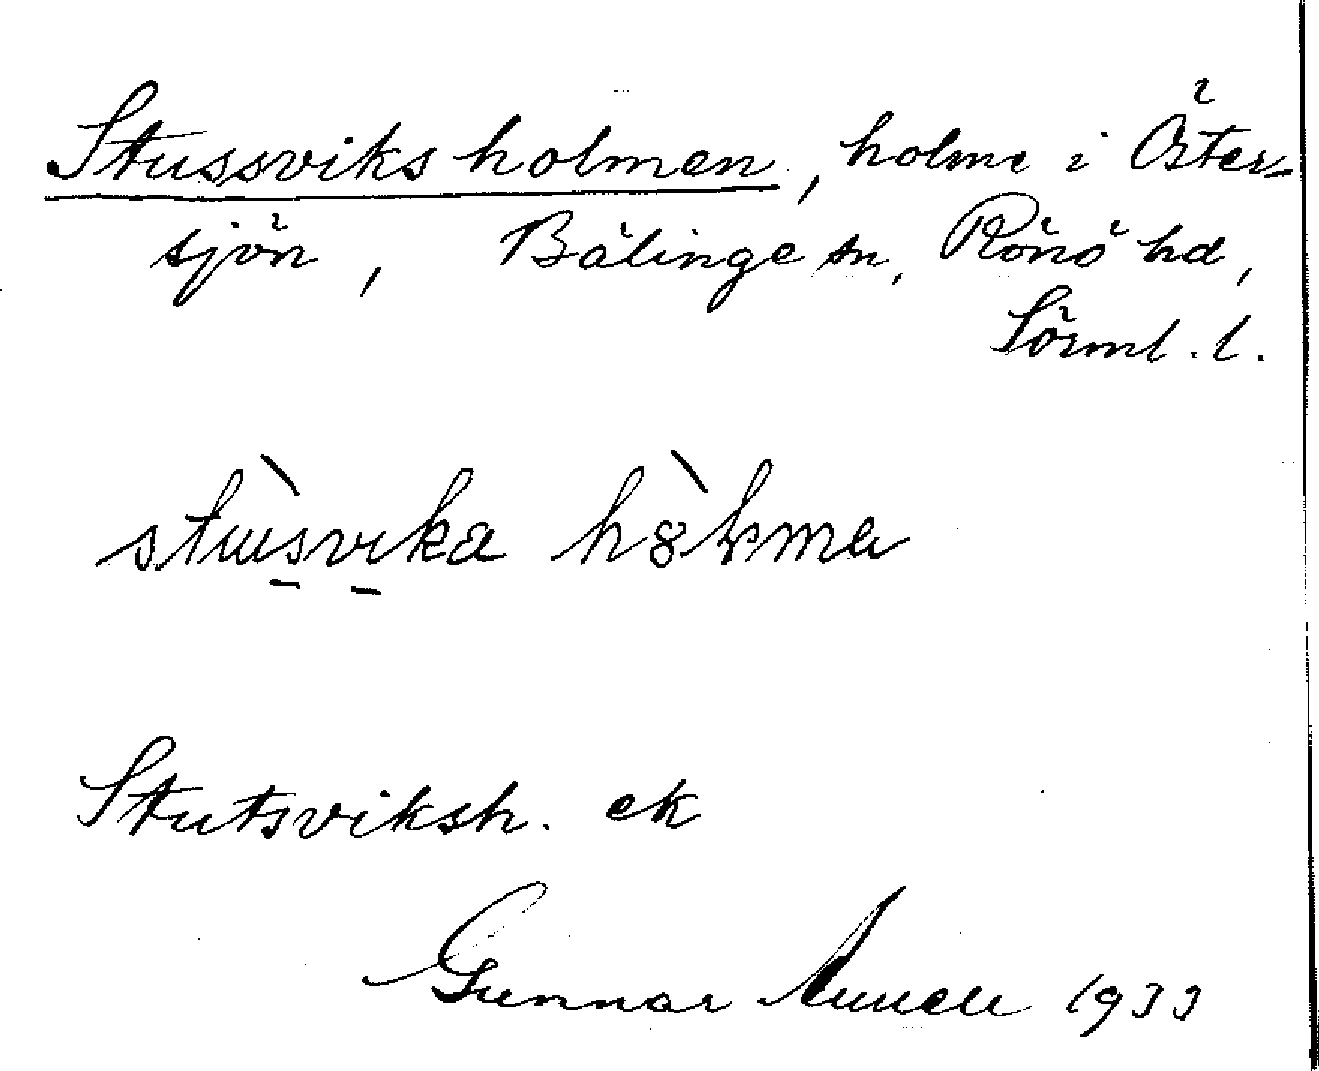 Stussviksholmen, holme i Öster-
sjön, Bälinge sn, Rönö hd,
Sörml. l.
Stutsviksh. ek
Gunnar 1933